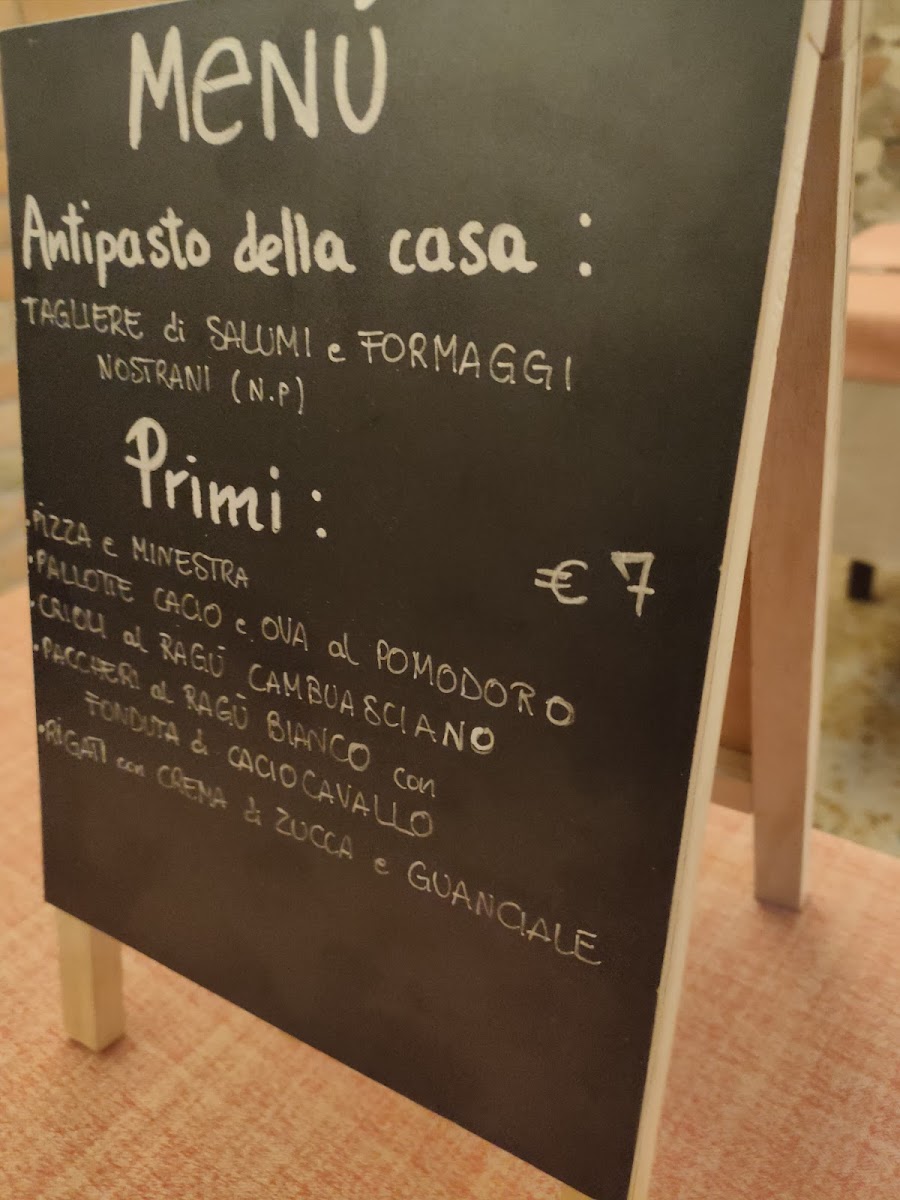 MENÙ
Antipasto della casa :
TAGLIERE di SALUMI e FORMAGGI
NOSTRANI (N.P)
Primi :
€ 7
• PIZZA e MINESTRA
• PALLOTTE CACIO e OVA al POMODORO
• CRIOLI al RAGÙ CAMBUASCIANO
• PACCHERI al RAGÙ BIANCO con
FONDUTA di CACIOCAVALLO
• RIGATI con CREMA di ZUCCA e GUANCIALE